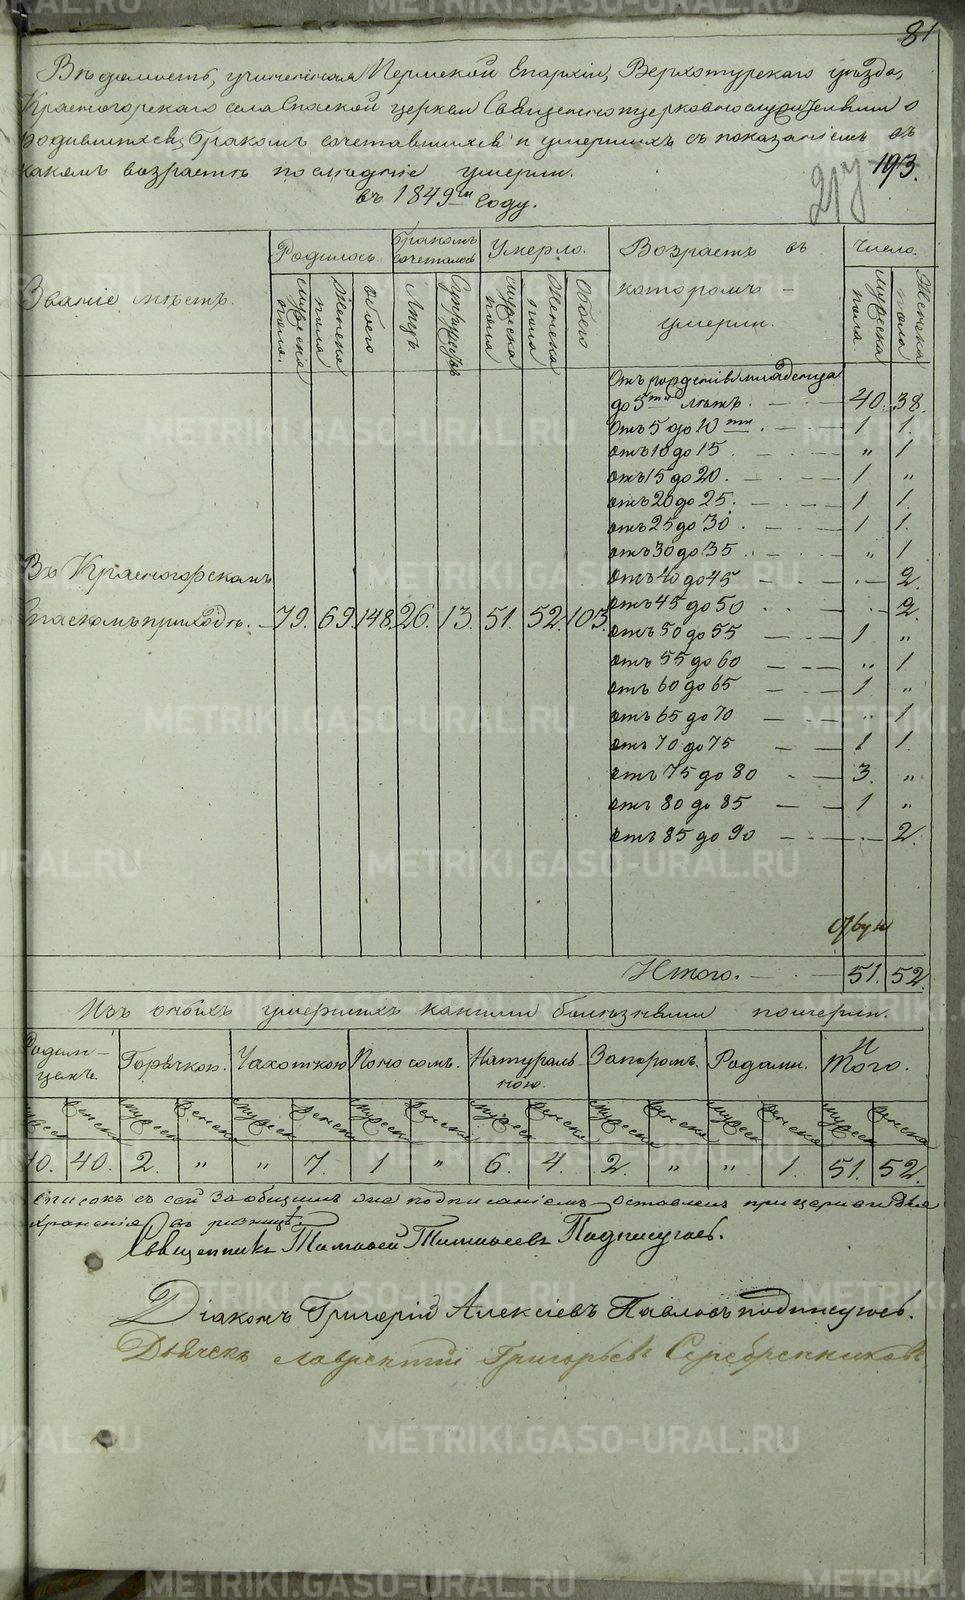 81
Ведомость, учиненная Пермской Епархіи, Верхотурскаго уезда,
Красногорскаго села Спаской церкви Священноцерковнослужителями о
родившихся, бракомъ сочетавшихся и умершихъ съ показаніемъ въ
какомъ возрасте последніе умерли.
193.
въ 1849м Году.
Званіе местъ.
Родилось
Бракомъ сочеталось
Умерло.
Возрастъ въ которомъ умерли.
Число.
мужеска пола.
женска пола
обоего
Лицъ.
Супружествъ
мужеска пола
женска пола
обоего
мужеска пола
женска пола
Отъ рожденія младенца
до 5ти летъ. 40. 38.
Отъ 5 до 10ти 1 1.
отъ 10 до 15. „ 1
отъ 15 до 20. 1 „
отъ 20 до 25. 1 1.
отъ 25 до 30. 1 1.
отъ 30 до 35. „ 1
отъ 40 до 45 - 2.
отъ 45 до 50. - 2.
отъ 50 до 55 1 „
отъ 55 до 60 „ 1
отъ 60 до 65 1 „
отъ 65 до 70 „ 1
отъ 70 до 75 1 1.
отъ 75 до 80 3. „
отъ 80 до 85 1 „
отъ 85 до 90 - 2.
Въ Красногорскомъ
Спаскомъ приходе. 79. 69. 148. 26. 13. 51. 52. 103.
Итого. 51. 52.
Изъ оныхъ умершихъ какими болезнями померли.
Родимцемъ Горячкою. Чахоткою Поносомъ. Натуральною. Запоромъ. Родами. Итого.
мужеск женска мужеск женска мужеск женска мужеск женска мужеск женска мужеск женска мужеск женска мужеск женска
40. 40. 2. „ „ 7. 1 „ 6. 4. 2. „ „ 1. 51. 52.
Списокъ съ сей за общимъ подписаніемъ оставленъ при церкви для
храненія въ ризнице.
Священникъ Тимофей Тимофеевъ Подписуюсь.
Діаконъ Григорій Алексіевъ Павловъ подписуюсь.
Дьячекъ Лаврентій Григорьевъ Серебренниковъ
METRIKI.GASO-URAL.RU